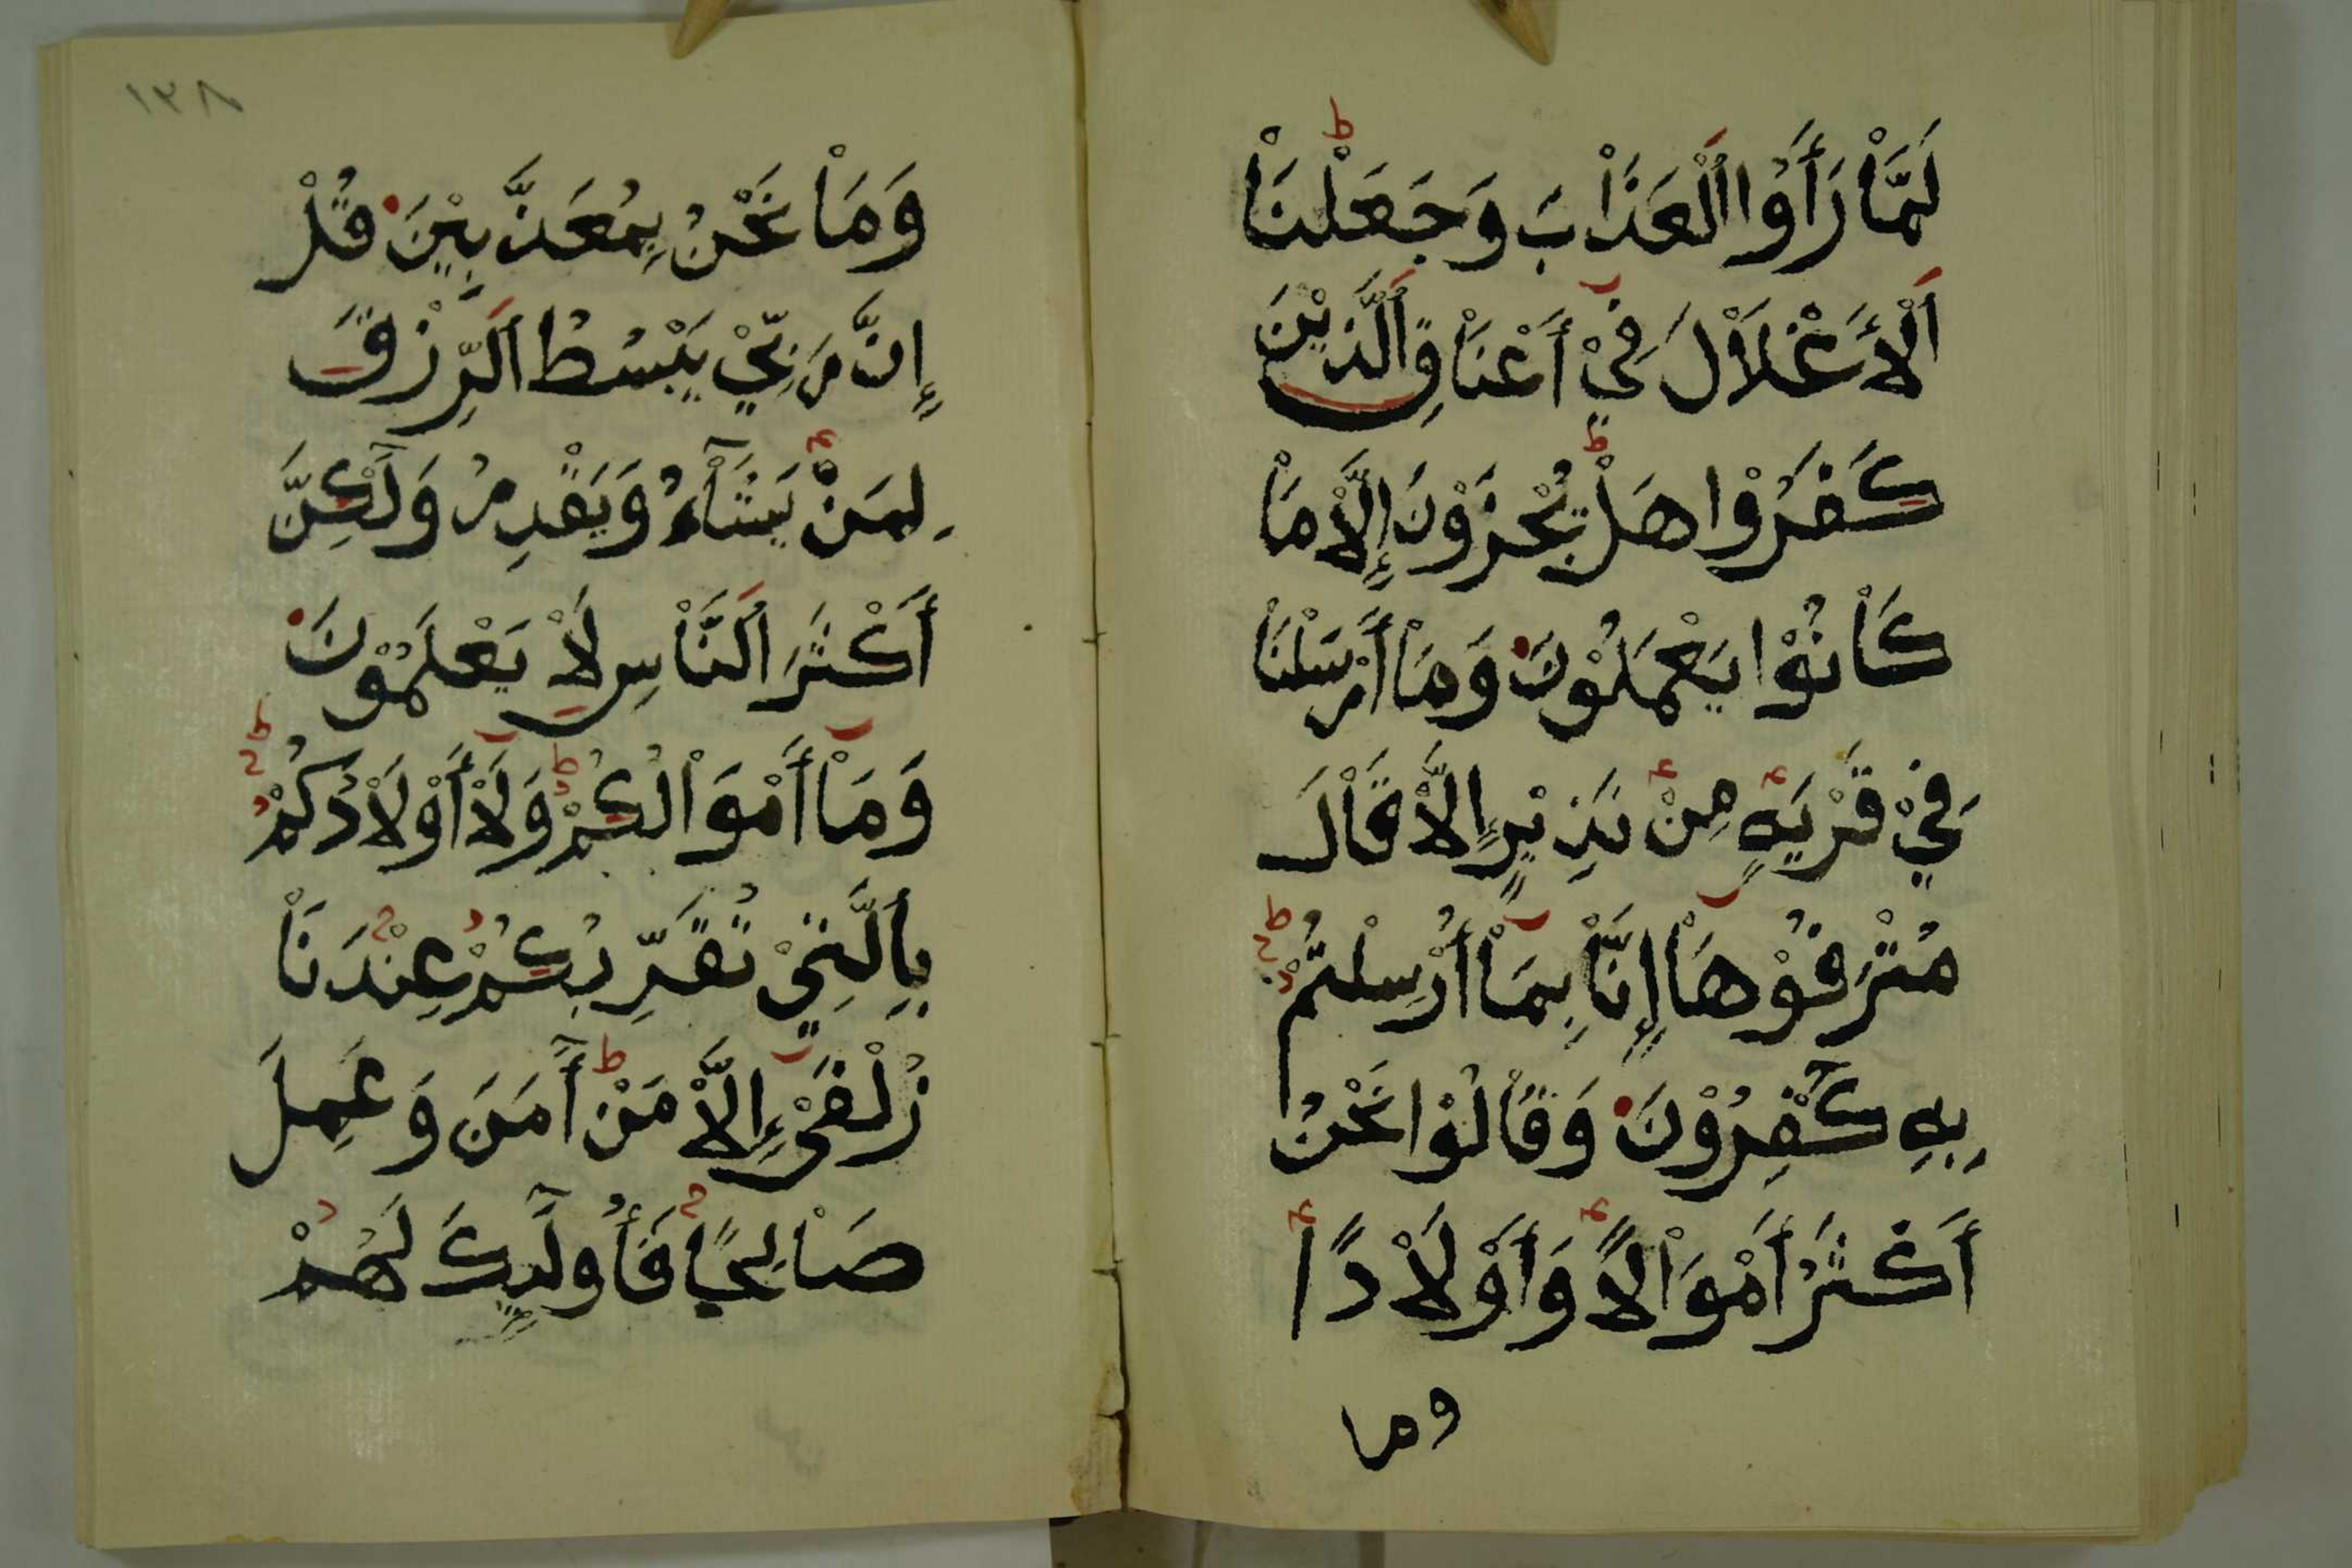 لَمَّاْ رَأَوُا اَلْعَذَاْبَ وَجَعَلْنَاْ
اَلْأَغْلَاْلَ فِيْ أَعْنَاْقِ اَلَّذِيْنَ
كَفَرُوْا هَلْ يُجْزَوْنَ إِلَّاْ مَاْ
كَاْنُوْا يَعْمَلُوْنَ وَمَاْ أَرْسَلْنَاْ
فِيْ قَرْيَةٍ مِنْ نَذِيْرٍ إِلَّاْ قَاْلَ
مُتْرَفُوْهَاْ إِنَّاْ بِمَاْ أُرْسِلْتُمْ
بِهِ كَٰفِرُوْنَ وَقَاْلُوْا نَحْنُ
أَكْثَرُ أَمْوَاْلًا وَأَوْلَاْدًا
وما
١٣٨
وَمَاْ نَحْنُ بِمُعَذَّبِيْنَ قُلْ
إِنَّ رَبِّيْ يَبْسُطُ اَلرِّزْقَ
لِمَنْ يَشَاْءُ وَيَقْدِرُ وَلَٰكِنَّ
أَكْثَرَ اَلنَّاْسِ لَاْ يَعْلَمُوْنَ
وَمَاْ أَمْوَاْلُكُمْ وَلَاْ أَوْلَاْدُكُمْ
بِاَلَّتِيْ تُقَرِّبُكُمْ عِنْدَنَاْ
زُلْفَىْ إِلَّاْ مَنْ أٰمَنَ وَعَمِلَ
صَاْلِحًا فَأُولَٰئِكَ لَهُمْ